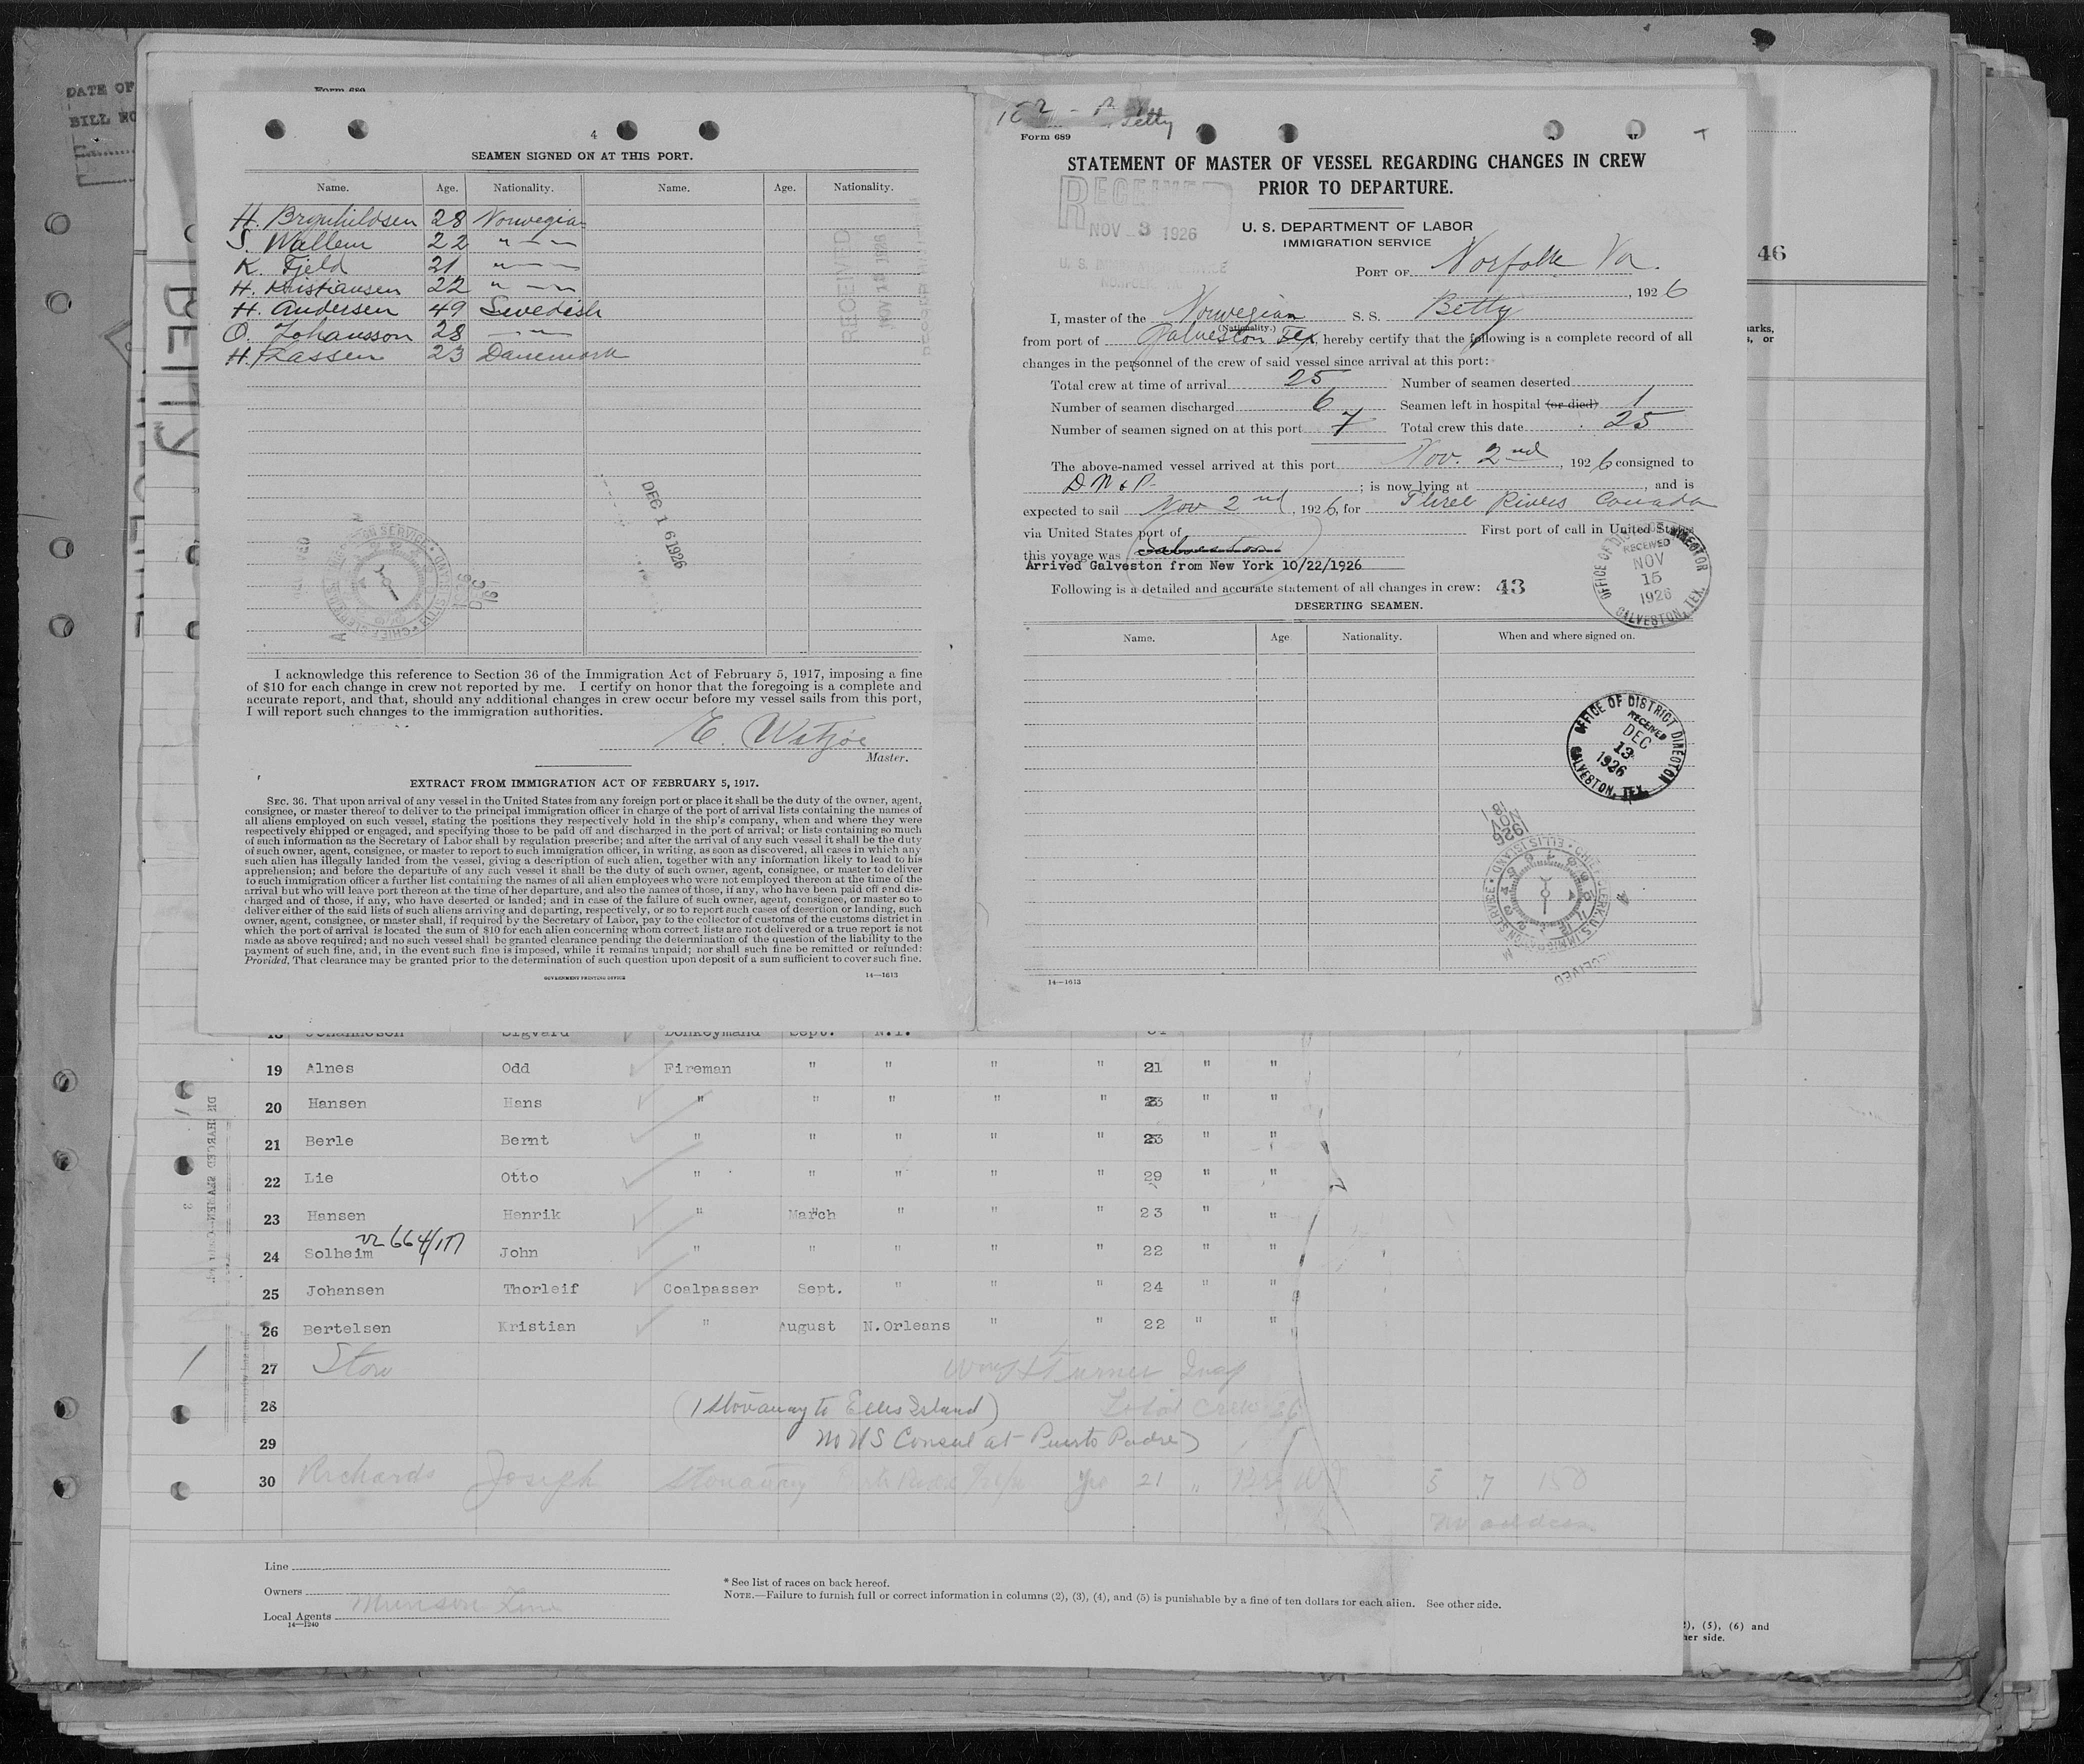 DATE OF
BILL NO
Form 689
4
SEAMEN SIGNED ON AT THIS PORT.
Name. Age. Nationality. Name. Age. Nationality.
H. Brynhildsen 28 Norwegian
S. Wallem 22 " — —
K. Fjeld 21 " — —
H. Kristiansen 22 " — —
H. Andersen 49 Swedish
O. Johansson 28 — " —
H. Lassen 23 Danemark
RECEIVED
NOV 18 1926
DEC 16 1926
I acknowledge this reference to Section 36 of the Immigration Act of February 5, 1917, imposing a fine
of $10 for each change in crew not reported by me. I certify on honor that the foregoing is a complete and
accurate report, and that, should any additional changes in crew occur before my vessel sails from this port,
I will report such changes to the immigration authorities.
E. Witzøe
Master.
EXTRACT FROM IMMIGRATION ACT OF FEBRUARY 5, 1917.
SEC. 36. That upon arrival of any vessel in the United States from any foreign port or place it shall be the duty of the owner, agent,
consignee, or master thereof to deliver to the principal immigration officer in charge of the port of arrival lists containing the names of
all aliens employed on such vessel, stating the positions they respectively hold in the ship's company, when and where they were
respectively shipped or engaged, and specifying those to be paid off and discharged in the port of arrival; or lists containing so much
of such information as the Secretary of Labor shall by regulation prescribe; and after the arrival of any such vessel it shall be the duty
of such owner, agent, consignee, or master to report to such immigration officer, in writing, as soon as discovered, all cases in which any
such alien has illegally landed from the vessel, giving a description of such alien, together with any information likely to lead to his
apprehension; and before the departure of any such vessel it shall be the duty of such owner, agent, consignee, or master to deliver
to such immigration officer a further list containing the names of all alien employees who were not employed thereon at the time of the
arrival but who will leave port thereon at the time of her departure, and also the names of those, if any, who have been paid off and dis-
charged and of those, if any, who have deserted or landed; and in case of the failure of such owner, agent, consignee, or master so to
deliver either of the said lists of such aliens arriving and departing, respectively, or so to report such cases of desertion or landing, such
owner, agent, consignee, or master shall, if required by the Secretary of Labor, pay to the collector of customs of the customs district in
which the port of arrival is located the sum of $10 for each alien concerning whom correct lists are not delivered or a true report is not
made as above required; and no such vessel shall be granted clearance pending the determination of the question of the liability to the
payment of such fine, and, in the event such fine is imposed, while it remains unpaid; nor shall such fine be remitted or refunded:
Provided, That clearance may be granted prior to the determination of such question upon deposit of a sum sufficient to cover such fine.
GOVERNMENT PRINTING OFFICE 14—1613
Betty
Form 689
STATEMENT OF MASTER OF VESSEL REGARDING CHANGES IN CREW
PRIOR TO DEPARTURE.
RECEIVED
NOV 3 1926
U. S. DEPARTMENT OF LABOR
IMMIGRATION SERVICE
PORT OF Norfolk Va.
, 1926
I, master of the Norwegian S. S. Betty
(Nationality.)
from port of Galveston Tex, hereby certify that the following is a complete record of all
changes in the personnel of the crew of said vessel since arrival at this port:
Total crew at time of arrival 25 Number of seamen deserted
Number of seamen discharged 6 Seamen left in hospital (or died) 1
Number of seamen signed on at this port 7 Total crew this date 25
The above-named vessel arrived at this port Nov. 2nd, 1926 consigned to
; is now lying at , and is
expected to sail Nov 2nd, 1926, for Three Rivers Canada
via United States port of First port of call in United States
this voyage was Galveston
Arrived Galveston from New York 10/22/1926
Following is a detailed and accurate statement of all changes in crew: 43
DESERTING SEAMEN.
Name. Age Nationality. When and where signed on.
OFFICE OF DISTRICT DIRECTOR
RECEIVED
NOV
15
1926
GALVESTON, TEX.
OFFICE OF DISTRICT DIRECTOR
RECEIVED
DEC
13
1926
GALVESTON, TEX.
NOV 18 1926
CHIEF CLERK U.S. IMMIGRATION SERVICE ELLIS ISLAND
RECEIVED
14—1613
46
BETTY
18 Johannesen Sigvard Donkeymand Sept. N.Y.
19 Alnes Odd Fireman " " " " 21 " "
20 Hansen Hans " " " " " 23 " "
21 Berle Bernt " " " " " " "
22 Lie Otto " " " " " 29 " "
23 Hansen Henrik " March " " " 23 " "
24 Solheim John " " " " " 22 " "
25 Johansen Thorleif Coalpasser Sept. " " " 24 " "
26 Bertelsen Kristian " August N.Orleans " " 22 " "
27 Stow
28 (1 Stowaway to Ellis Island) Total Crew 26
29 No US Consul at Puerto Padre)
30 Richards Joseph Stowaway 21 " 5 7 150
No address
Line
Owners
Local Agents Munson Line
14—1240
* See list of races on back hereof.
NOTE.—Failure to furnish full or correct information in columns (2), (3), (4), and (5) is punishable by a fine of ten dollars for each alien. See other side.
(5), (6) and
her side.